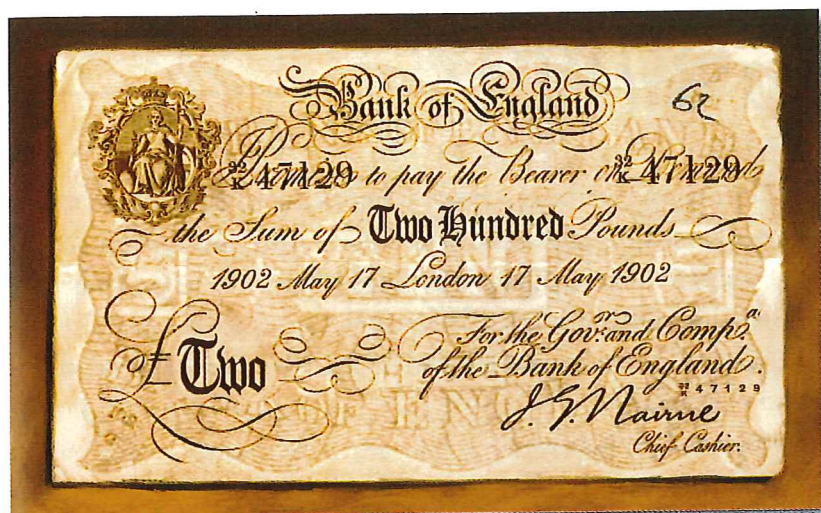 Bank of England
62
I Promise to pay the Bearer on Demand
32/K 47129 32/K 47129
the Sum of Two Hundred Pounds
1902 May 17 London 17 May 1902
For the Govr. and Compa.
£ Two
of the Bank of England.
32/K 47129
J. G. Nairne
Chief Cashier.